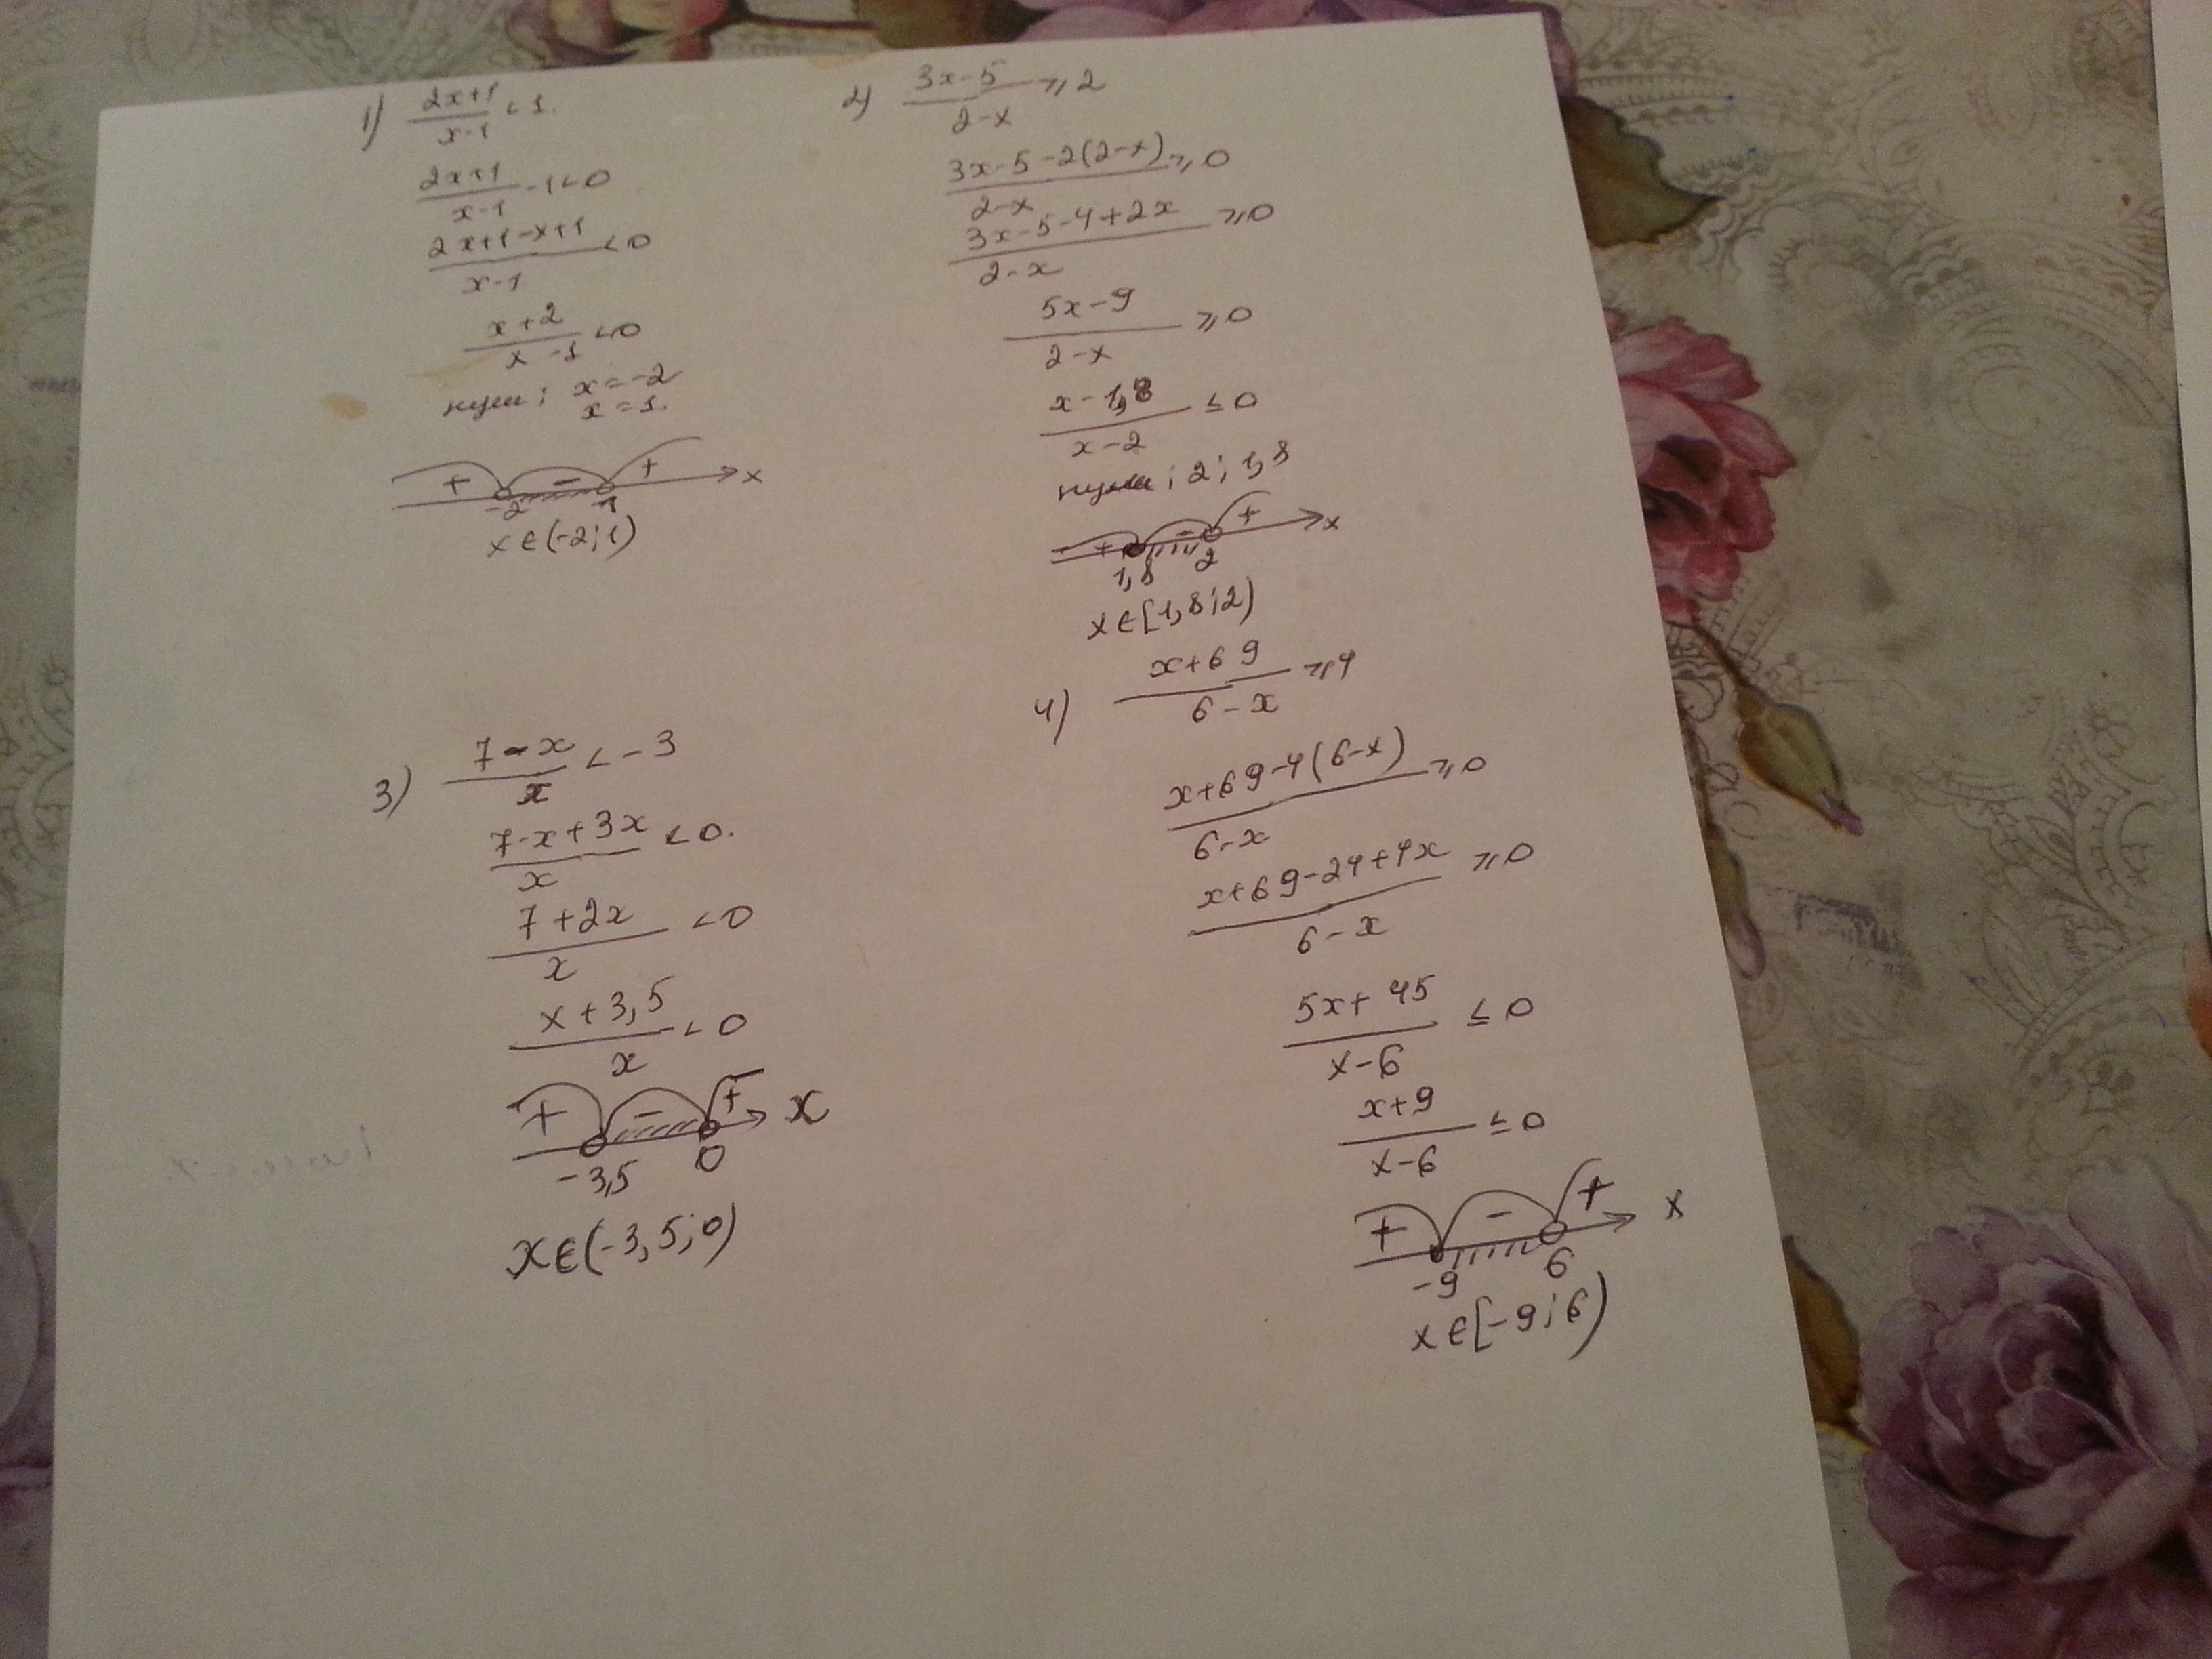 1) (2x+1)/(x-1) < 1.
(2x+1)/(x-1) - 1 < 0
(2x+1-x+1)/(x-1) < 0
(x+2)/(x-1) < 0
нули; x = -2
x = 1.
+ - + x
-2 1
x ∈ (-2; 1)
2) (3x-5)/(2-x) ⩾ 2
(3x-5-2(2-x))/(2-x) ⩾ 0
(3x-5-4+2x)/(2-x) ⩾ 0
(5x-9)/(2-x) ⩾ 0
(x-1,8)/(x-2) ≤ 0
нули; 2; 1,8
+ - + x
1,8 2
x ∈ [1,8; 2)
3) (7-x)/x < -3
(7-x+3x)/x < 0.
(7+2x)/x < 0
(x+3,5)/x < 0
+ - + x
-3,5 0
x ∈ (-3,5; 0)
4) (x+69)/(6-x) ⩾ 4
(x+69-4(6-x))/(6-x) ⩾ 0
(x+69-24+4x)/(6-x) ⩾ 0
(5x+45)/(x-6) ≤ 0
(x+9)/(x-6) ≤ 0
+ - + x
-9 6
x ∈ [-9; 6)